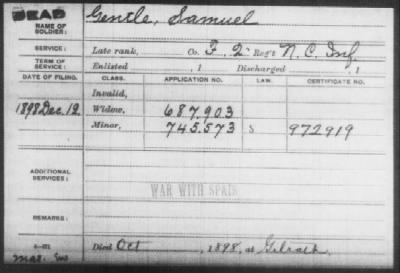 DEAD
NAME OF SOLDIER: Gentle, Samuel
SERVICE: Late rank, Co. F, 2" Reg't N.C. Inf
TERM OF SERVICE: Enlisted , 1 Discharged , 1
DATE OF FILING. CLASS. APPLICATION NO. LAW. CERTIFICATE NO.
Invalid,
1898 Dec. 12 Widow, 687.903
Minor, 745.573 S 972919
ADDITIONAL SERVICES:
WAR WITH SPAIN
REMARKS:
Died Oct , 1898, at